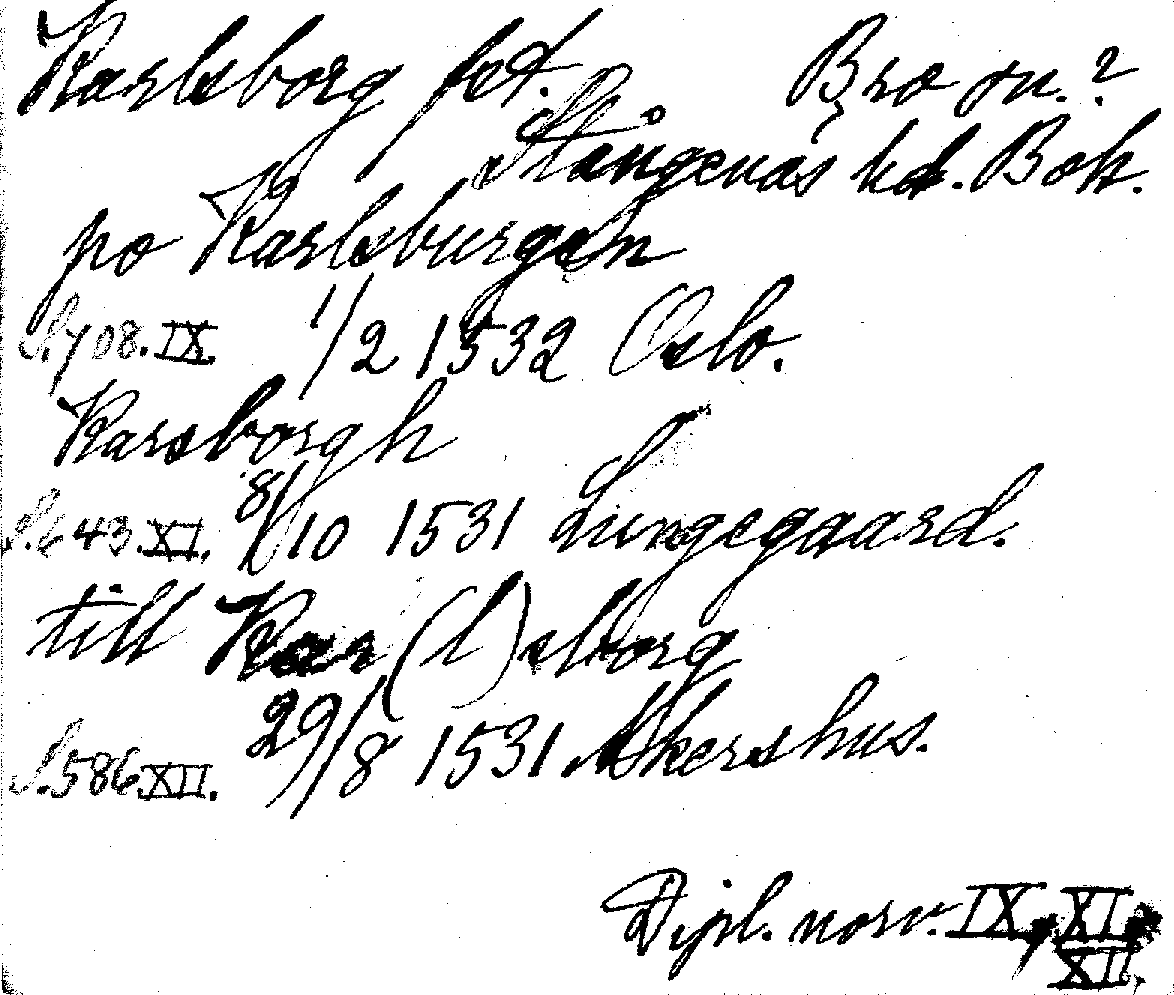 Karlsborg fst. Bro sn.?
Stångenäs hd. Boh.
po Karlsburgen
S. 708. IX. 1/2 1532 Oslo.
Karsborgh
S. 643. XI. 8/10 1531 Lungegaard.
till Kar(l)sborg
S. 586 XII. 29/8 1531 Akershus.
Dipl. norv. IX, XI,
XII.